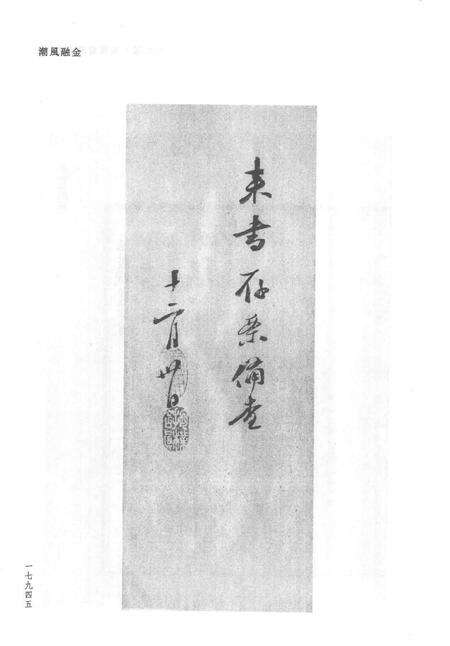 潮風融金
来書存案備查
十二月卅日
一七九四五